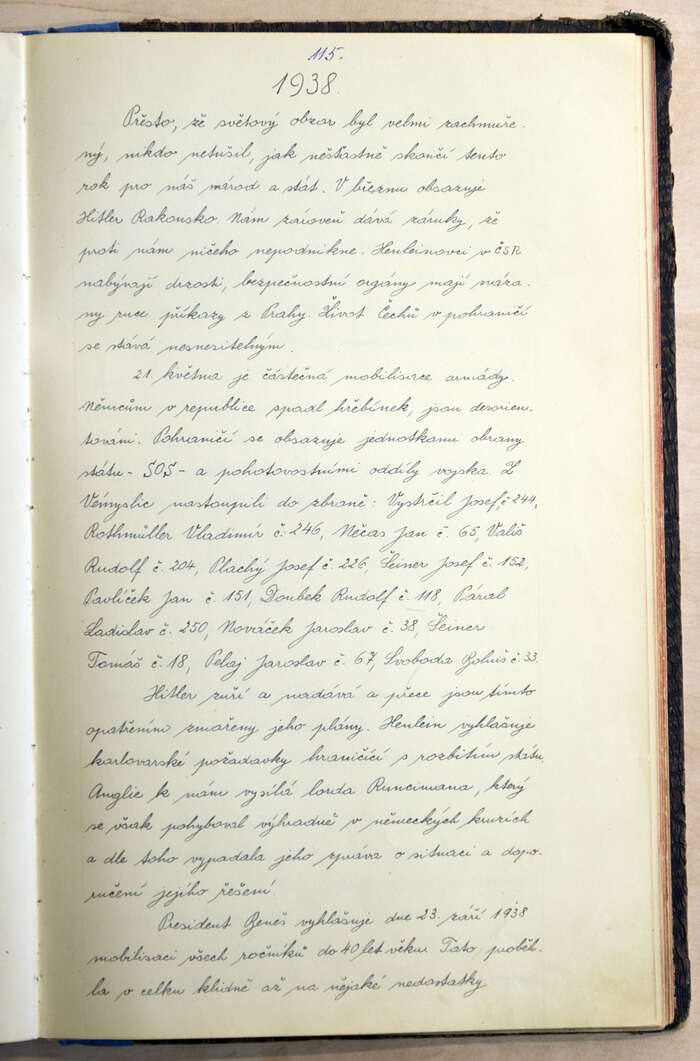 115.
1938.
Přesto, že světový obzor byl velmi zachmuře-
ný, nikdo netušil, jak nešťastně skončí tento
rok pro náš národ a stát. V březnu obsazuje
Hitler Rakousko. Nám zároveň dává záruky, že
proti nám ničeho nepodnikne. Henleinovci v ČSR
nabývají drzosti, bezpečnostní orgány mají sváza-
ny ruce příkazy z Prahy. Život Čechů v pohraničí
se stává nesnesitelným.
21. května je částečná mobilisace armády.
Němcům v republice spadl hřebínek, jsou desorien-
továni. Pohraničí se obsazuje jednotkami obrany
státu - SOS - a pohotovostními oddíly vojska. Z
Vémyslic nastoupili do zbraně: Vystrčil Josef, č 244,
Rothmüller Vladimír č. 246, Nečas Jan č. 65, Vališ
Rudolf č. 204, Plachý Josef č. 226, Šeiner Josef č. 152,
Pavlíček Jan č. 151, Doubek Rudolf č. 118, Páral
Ladislav č. 250, Nováček Jaroslav č. 38, Šeiner
Tomáš č. 18, Pelaj Jaroslav č. 67, Svoboda Bohuš č. 33.
Hitler zuří a nadává a přece jsou tímto
opatřením zmařeny jeho plány. Henlein vyhlašuje
karlovarské požadavky hraničící s rozbitím státu.
Anglie k nám vysílá lorda Runcimana, který
se však pohyboval výhradně v německých kruzích
a dle toho vypadala jeho zpráva o situaci a dopo-
ručení jejího řešení.
President Beneš vyhlašuje dne 23. září 1938
mobilisaci všech ročníků do 40 let věku. Tato proběh-
la v celku klidně až na nějaké nedostatky